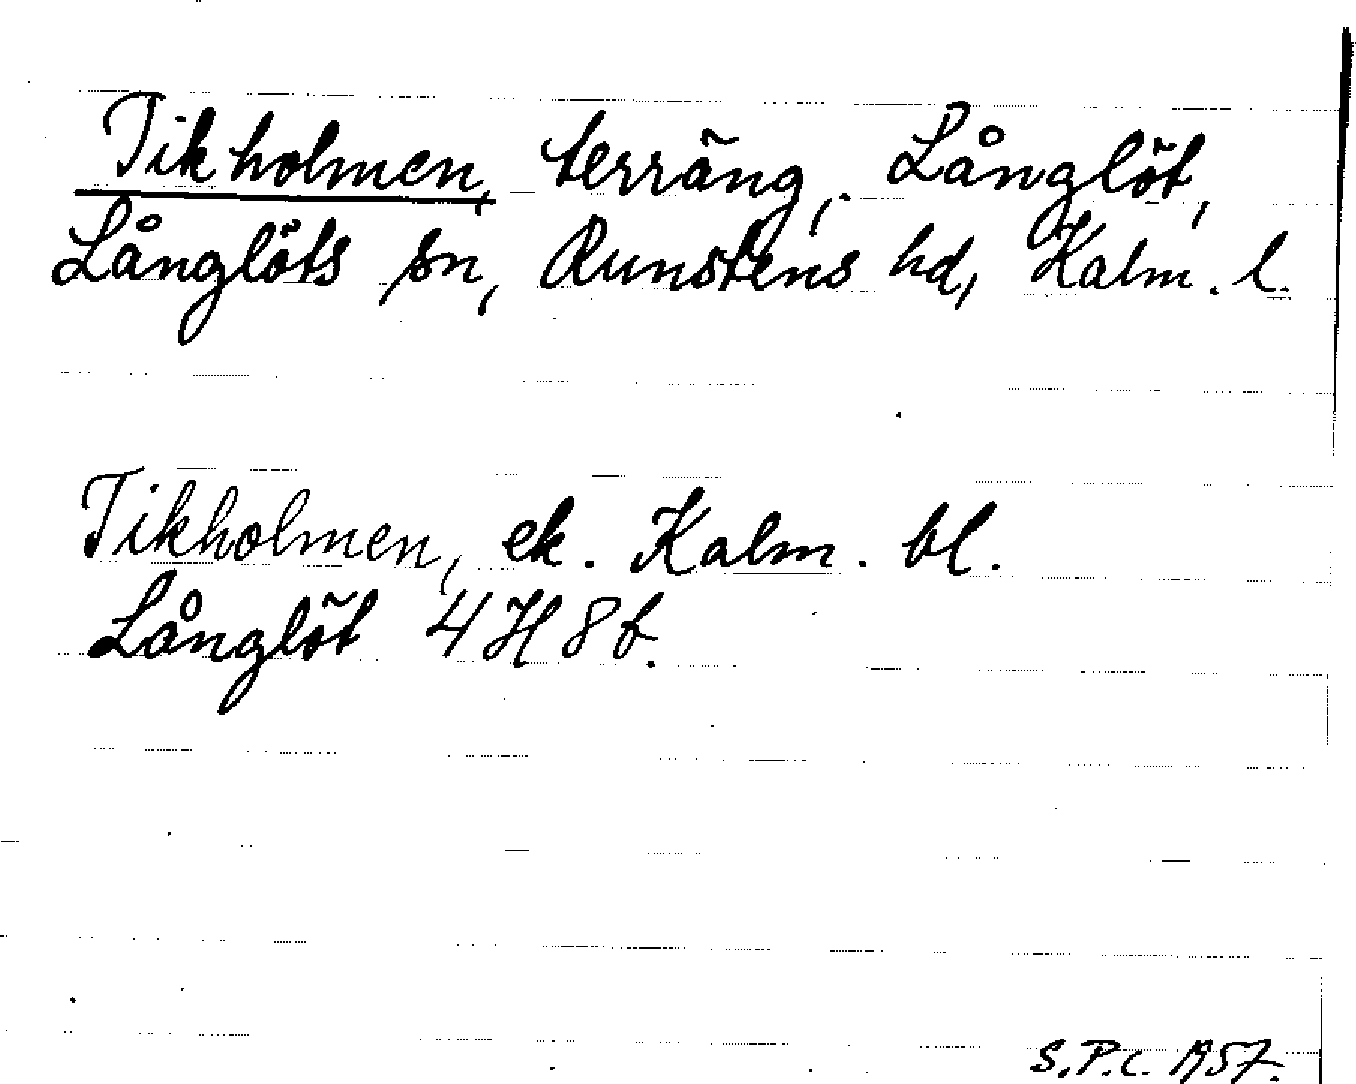 Tikholmen, terräng, Långlöt,
Långlöts sn, Runstens hd, Kalm. l.
Tikholmen, ek. Kalm. bl.
Långlöt 4H8f.
S.P.C. 1957.